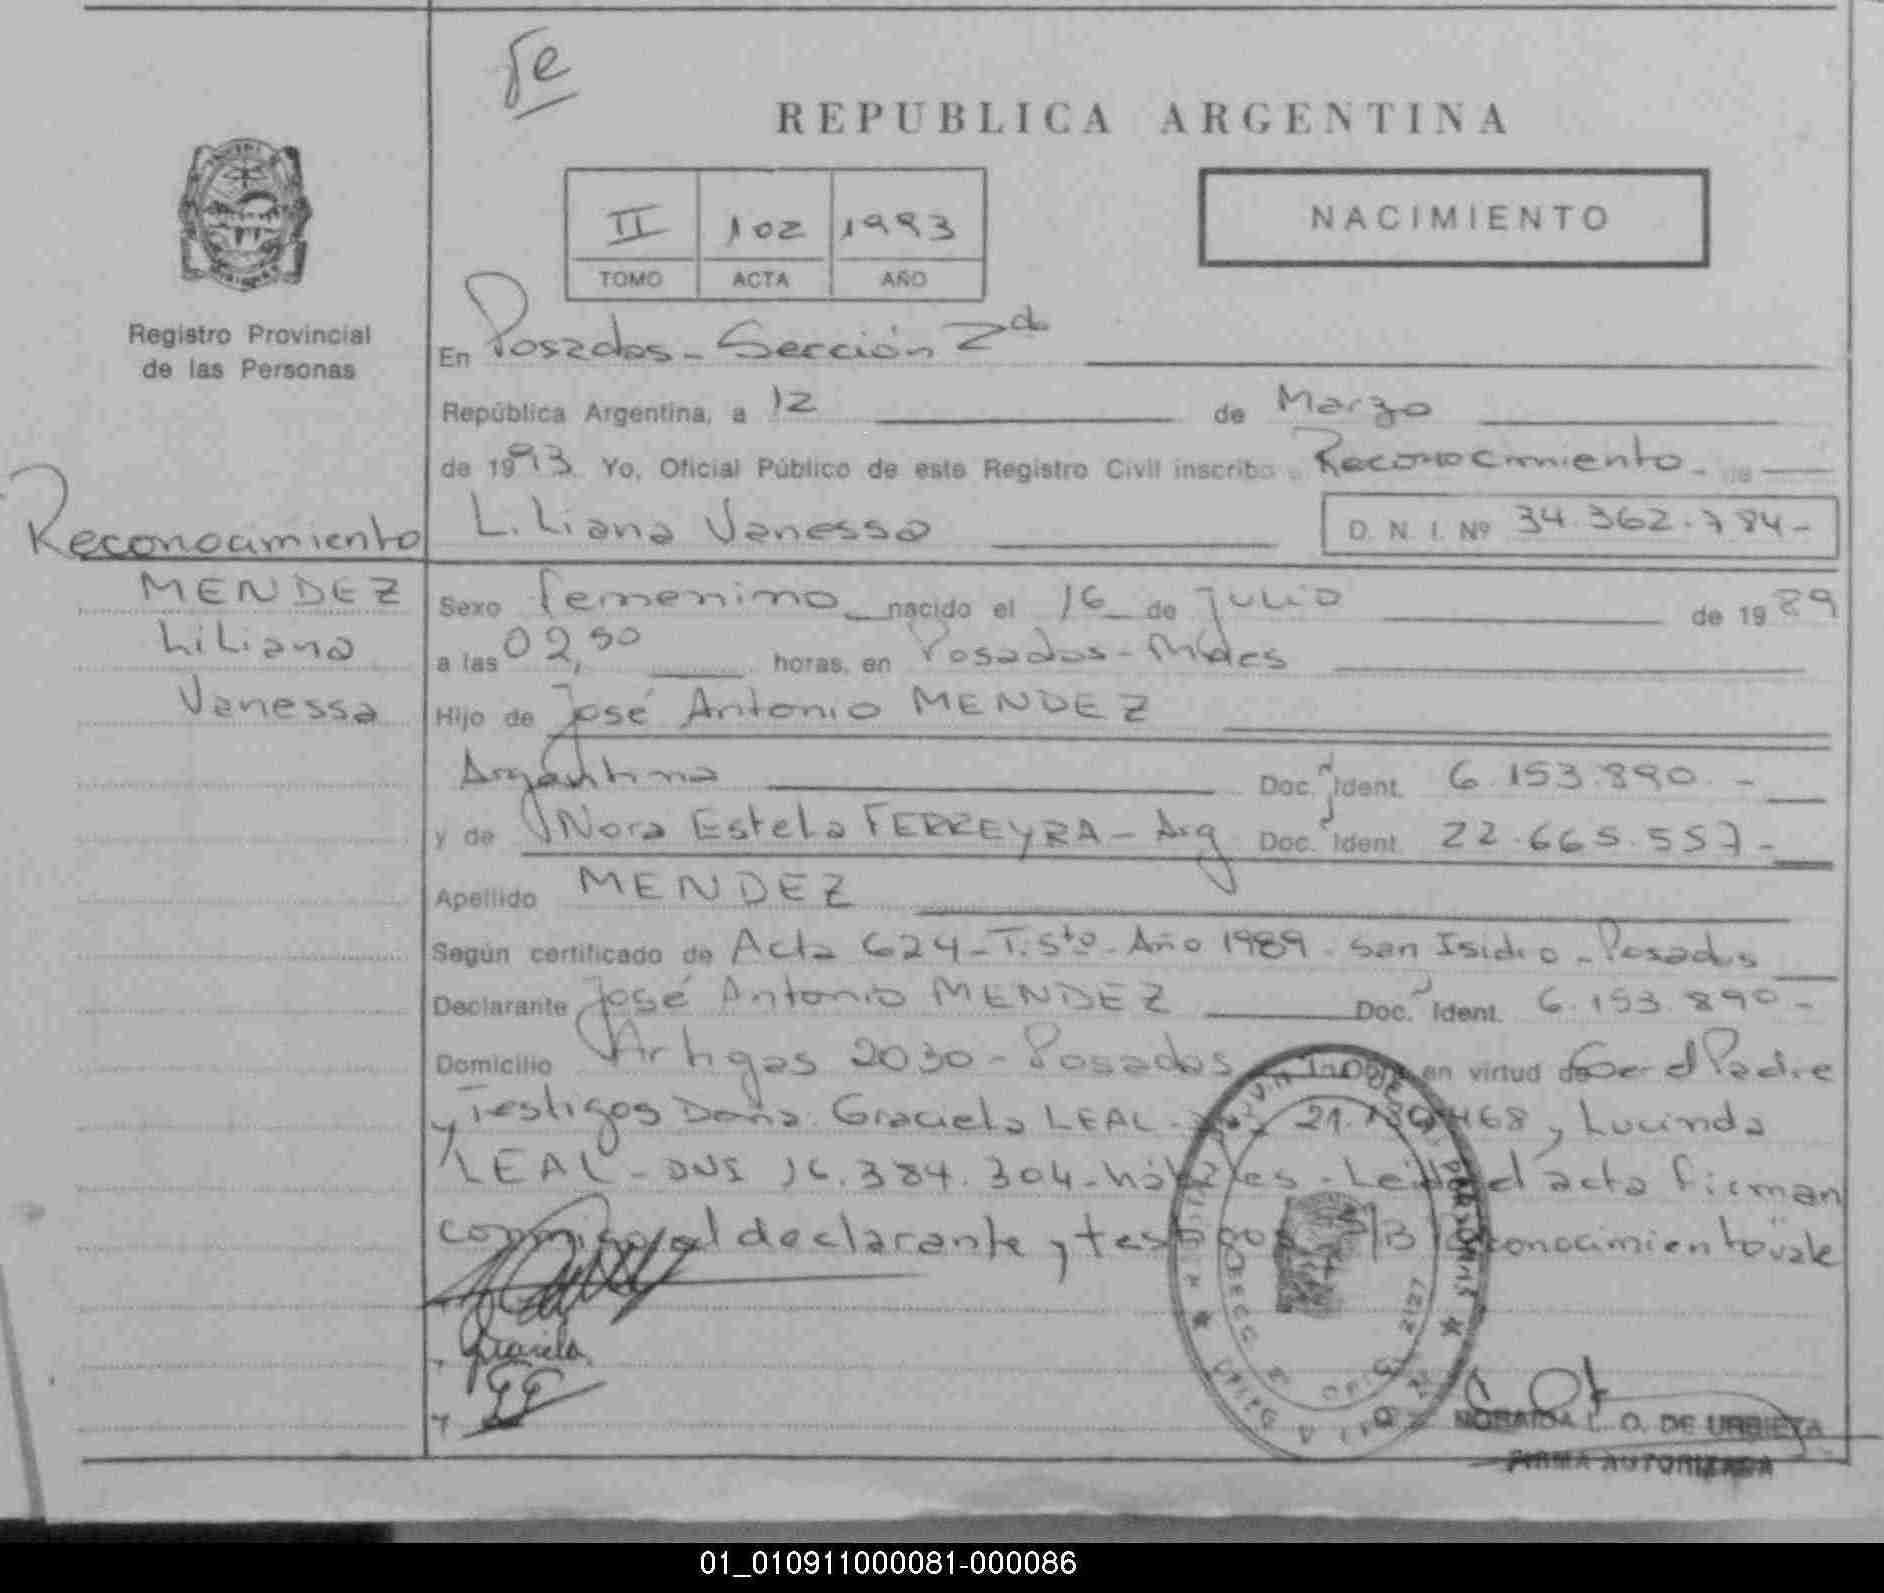 Fe
REPUBLICA ARGENTINA
II 102 1993
TOMO ACTA AÑO
NACIMIENTO
Registro Provincial
de las Personas
En Posadas - Sección 2da
República Argentina, a 12 de Marzo
de 1993 Yo, Oficial Público de este Registro Civil inscribo Reconocimiento -
Reconocimiento
Liliana Vanessa D. N. I. Nº 34.362.784-
MENDEZ
Liliana
Vanessa
Sexo femenino nacido el 16 de Julio de 1989
a las 02,50 horas, en Posadas - Mnes
Hijo de José Antonio MENDEZ
Argentina Doc. Ident. 6.153.890.-
y de Nora Estela FERREYRA - Arg Doc. Ident. 22.665.557-
Apellido MENDEZ
Según certificado de Acta 624 - T. 5to - Año 1989 - San Isidro - Posadas
Declarante José Antonio MENDEZ Doc. Ident. 6.153.890-
Domicilio Artigas 2030 - Posadas en virtud de Ser el Padre
y Testigos Doña Graciela LEAL - 468, Lucinda
LEAL - DNI 16.384.304 - hábiles - Leida el acta firman
conmigo el declarante y testigos S/B "Reconocimiento" vale
Graciela
NORAIDA L. O. DE URBIETA
FIRMA AUTORIZADA
01_010911000081-000086